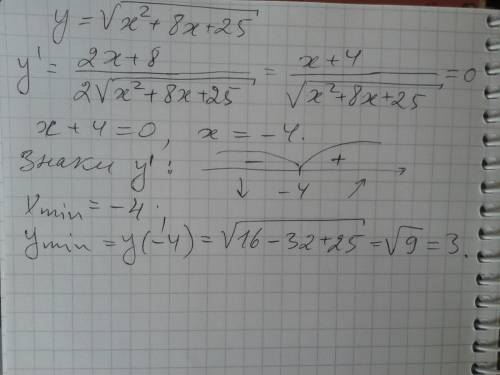 y = √(x² + 8x + 25)
y' = (2x + 8)/(2√(x² + 8x + 25)) = (x + 4)/√(x² + 8x + 25) = 0
x + 4 = 0, x = -4.
Знаки y': − + -4 ↓ ↗
Xmin = -4;
ymin = y(-4) = √(16 - 32 + 25) = √9 = 3.